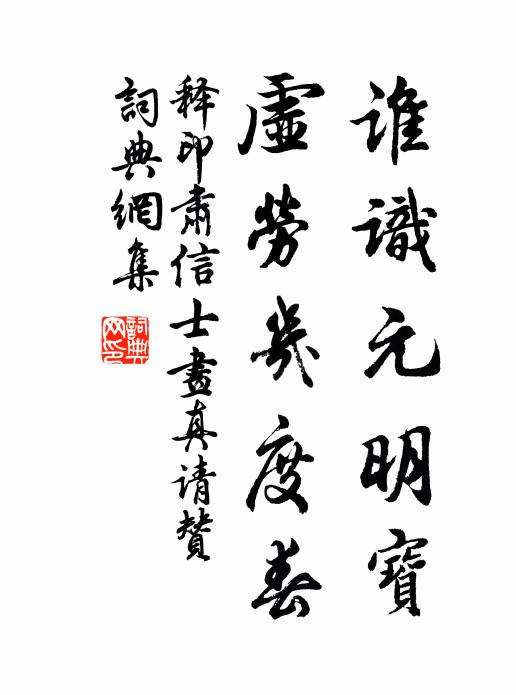 誰識元明寶
虛勞幾度春
释印肅信士畫真请贊
詞典網集
詞典网印